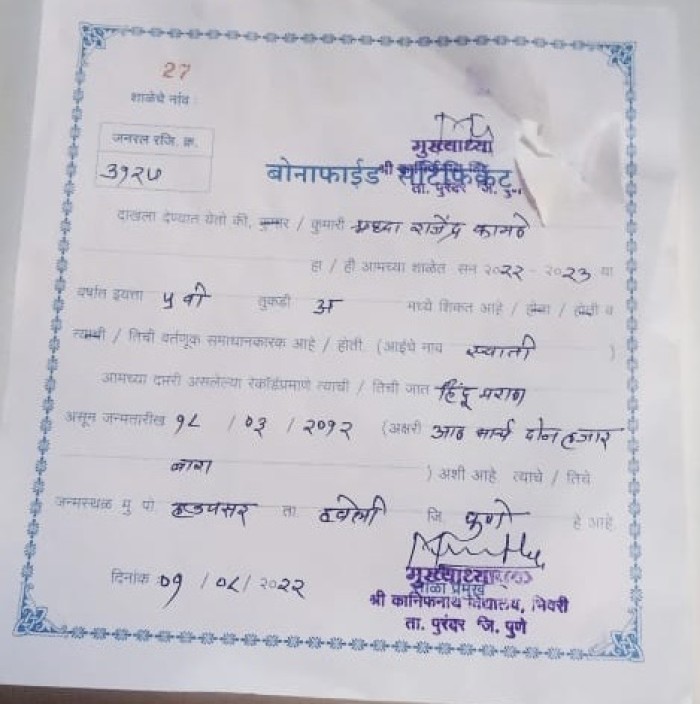 27
शाळेचे नांव :
जनरल रजि. क्र.
३१२७
मुख्याध्या
श्री
बोनाफाईड सर्टिफिकेट
ता. पुरंदर जि. पु
दाखला देण्यात येतो की, कुमार / कुमारी राजेंद्र कामठे
हा / ही आमच्या शाळेत सन २०२२ - २०२३ या
वर्षात इयत्ता ५ वी तुकडी अ मध्ये शिकत आहे / होता / होती व
त्याची / तिची वर्तणूक समाधानकारक आहे / होती. (आईचे नाव स्वाती )
आमच्या दप्तरी असलेल्या रेकॉर्डप्रमाणे त्याची / तिची जात हिंदू मराठा
असून जन्मतारीख १८ / ०३ / २०१२ (अक्षरी आठ मार्च दोन हजार
बारा ) अशी आहे त्याचे / तिचे
जन्मस्थळ मु पो. हडपसर ता. हवेली जि. पुणे हे आहे.
दिनांक : ०१ / ०८ / २०२२
मुख्याध्यापक
शाळा प्रमुख
श्री कानिफनाथ विद्यालय, भिवरी
ता. पुरंदर जि. पुणे